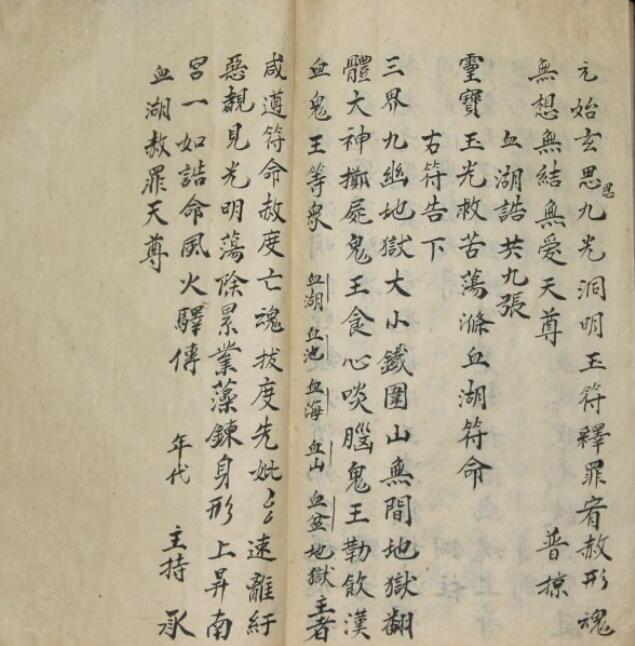 元始玄思恩九光洞明玉符釋罪宥赦形魂
無想無結無愛天尊 普掠
血湖誥共九張
靈寶玉光救苦蕩滌血湖符命
右符告下
三界九幽地獄大小鐵圍山無間地獄翻
體大神擲屍鬼王食心啖腦鬼王勒飲漢
血鬼王等衆 血湖 血池 血海 血山 血盆地獄主者
咸遵符命赦度亡魂拔度先妣 速離紆
惡親見光明蕩除累業藻鍊身形上昇南
宮一如誥命風火驛傳
血湖赦罪天尊 年代 主持 承